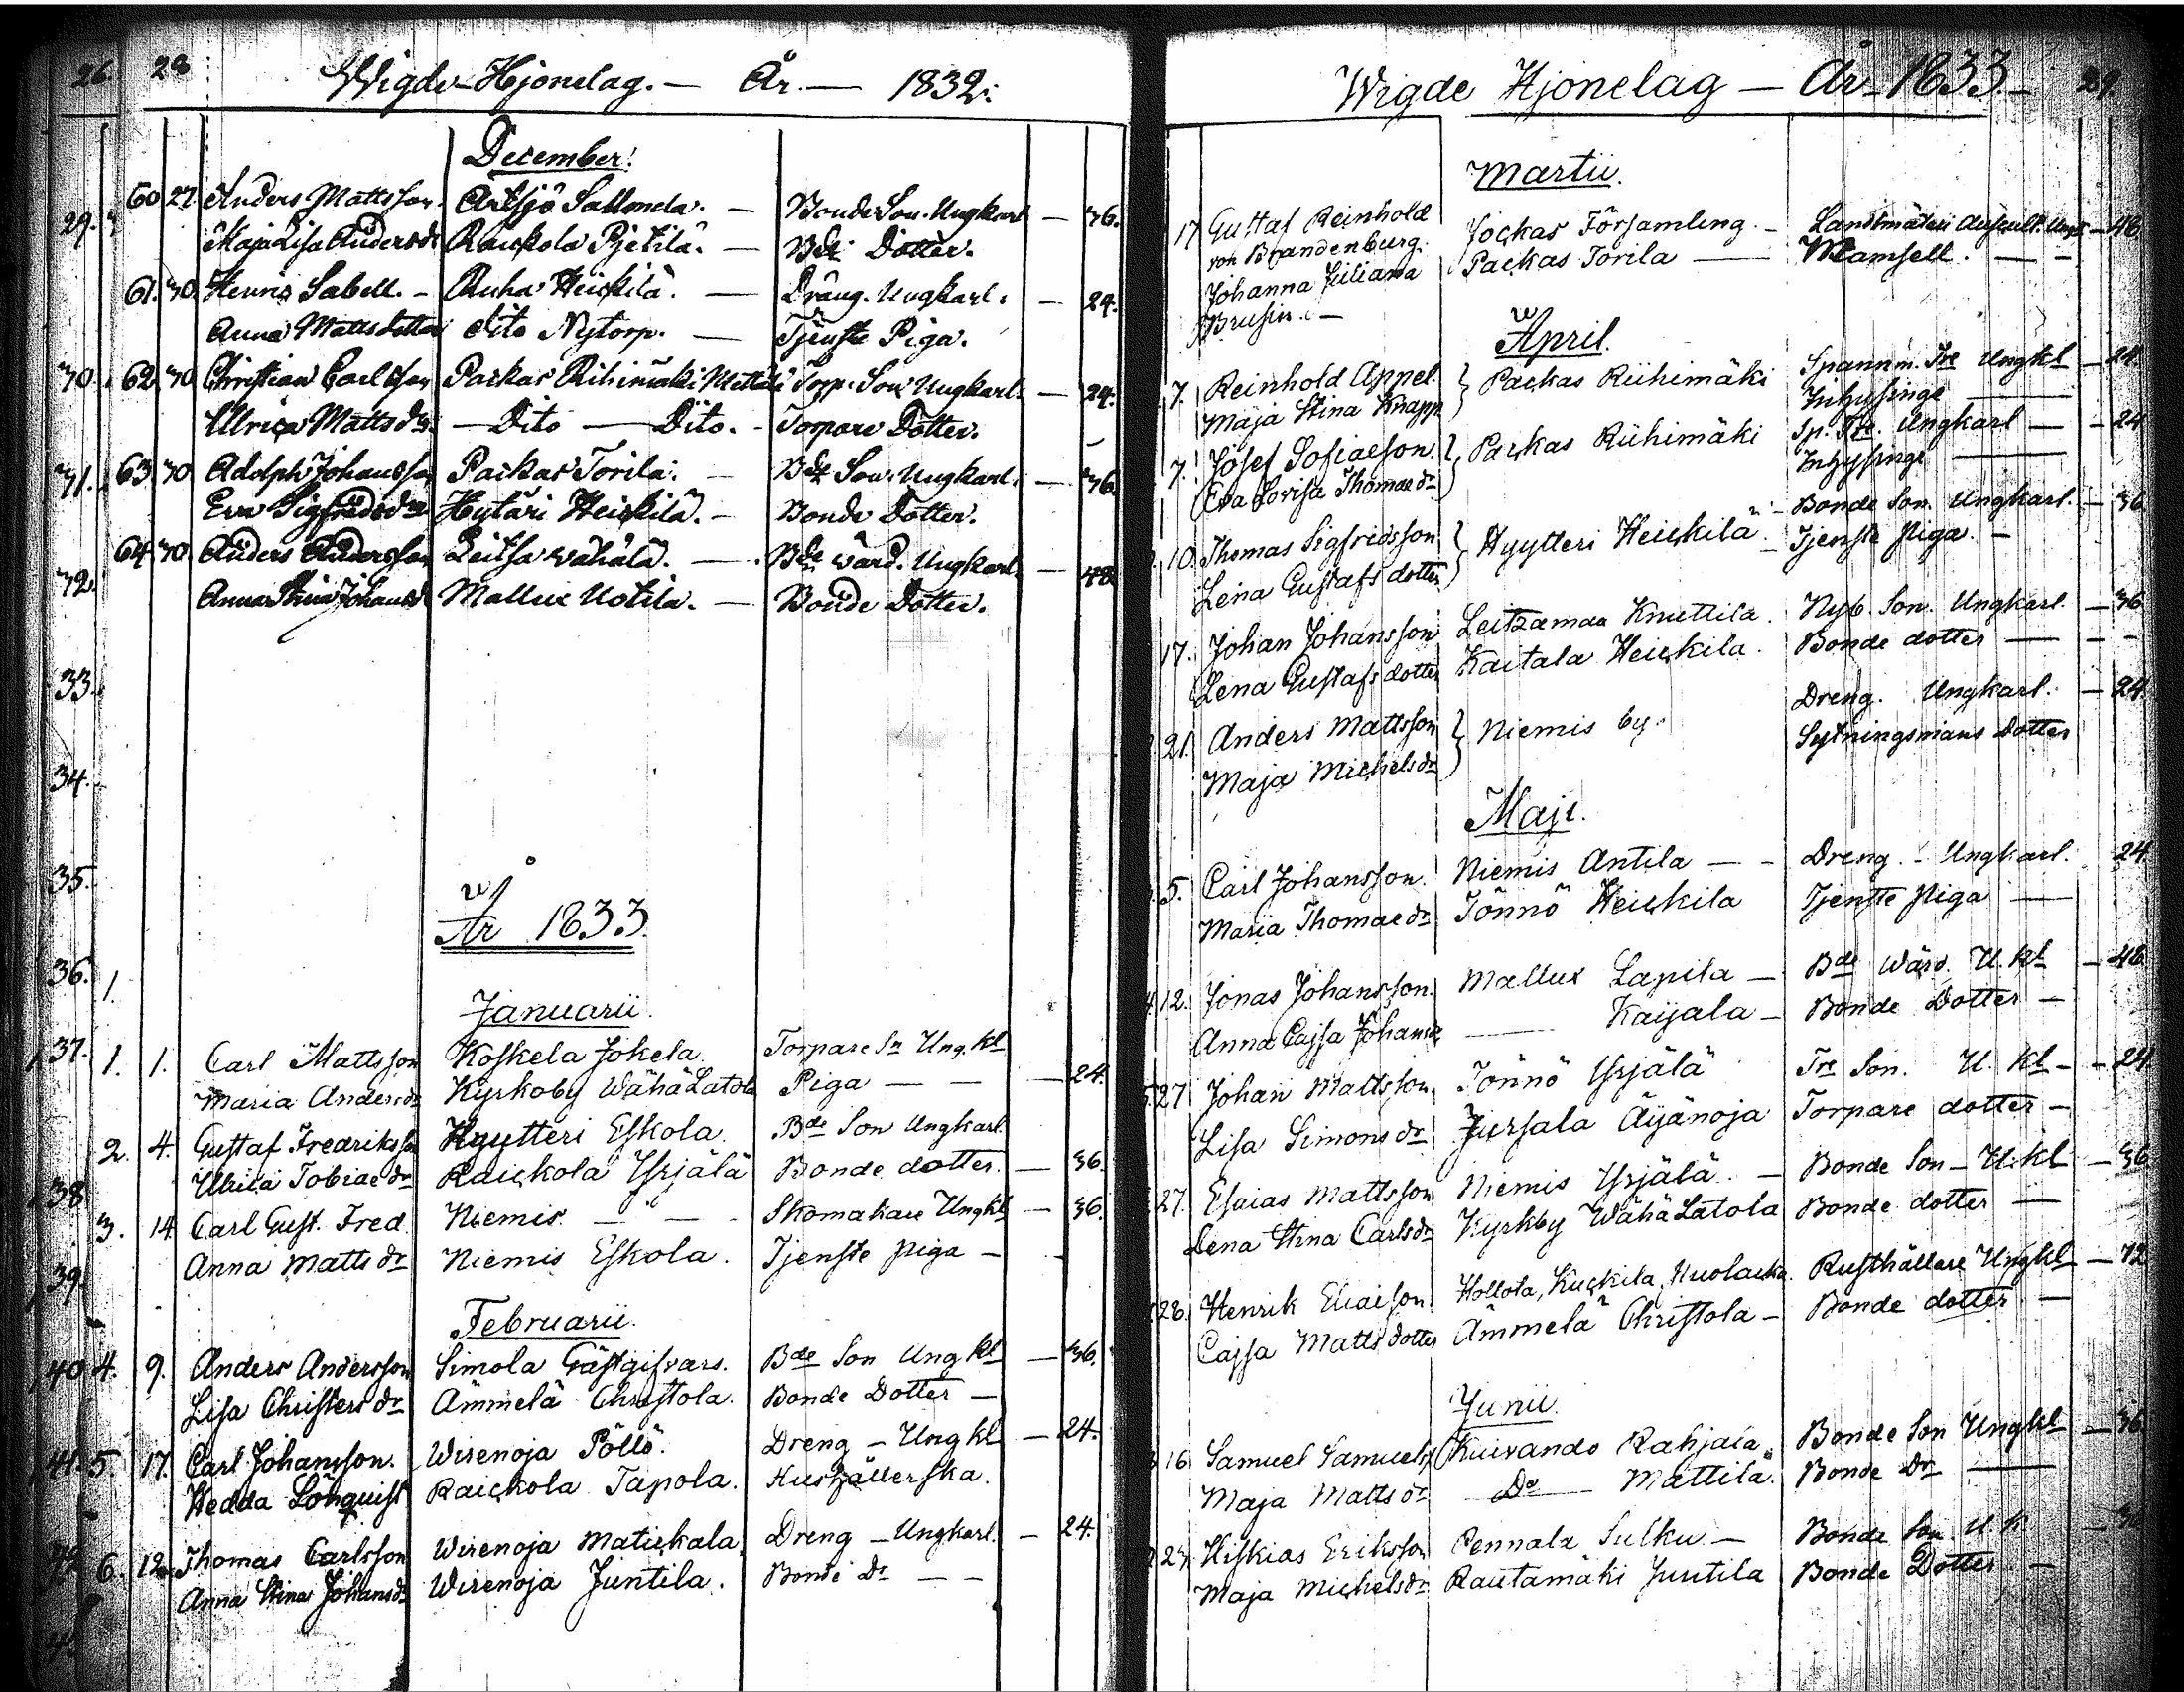 28 Wigde-Hjonelag. — År. — 1832.
December.
60 27 Anders Mattsson. Artsjö Sallmela. — Bonde Son. Ungkarl — 36.
Maja Lisa Andersdr Raickola Pjetilä. — Bde Dotter.
61. 30 Henric Sabell. — Ruha Heickilä. — Dräng. Ungkarl. — 24.
Anna Matts dotter dito Nytorp. — Tjenste Piga.
62. 30 Christian Carlsson Packas Riihimäki Mattila Torp. Son Ungkarl. — 24.
Ulrica Matts dr. — Dito — Dito. — Torpare Dotter.
63 30 Adolph Johansson Packas Torila. — Bde Son. Ungkarl. — 36.
Eva Sigfrids dr Hytäri Heickilä. — Bonde Dotter.
64. 30. Anders Andersson Leitsa Wähälä. — Bde Wärd. Ungkarl. — 48
Anna Stina Johansd Mallux Uotila. — Bonde Dotter.
År 1833.
Januarii.
1. 1. Carl Mattsson Koskela Jokela. Torpare Sn Ung. kl
Maria Anders dr Kyrkoby Wähä Latola Piga — — — 24.
2. 4. Gustaf Fredriksson Hyytteri Eskola. Bde Son Ungkarl
Ulrica Tobiae dr Raickola Yrjälä Bonde dotter. — 36.
3. 14 Carl Gust. Fred. Niemis. — — Skomakare Ungkl — 36.
Anna Matts dr Niemis Eskola. Tjenste piga —
Februarii.
4. 9. Anders Andersson Simola Gästgifvars. Bde Son Ung kl — 36.
Lisa Christers dr Ämmelä Christola. Bonde Dotter —
5 17. Carl Johansson. Wirenoja Pöllö. Dreng — Ung kl — 24.
Hedda Lönquist Raickola Tapola. Hushållerska.
6. 12. Thomas Carlsson Wirenoja Matickala. Dreng — Ungkarl. — 24.
Anna Stina Johansdr Wirenoja Juntila. Bonde Dr — —
Wigde Hjonelag — År 1833 — 29.
Martii.
17 Gustaf Reinhold Jockas Församling. — Landtmäteri Auscult. Ungk — 48
von Brandenburg.
Johanna Juliana Packas Torila — Mamsell. — —
Brusin. —
April.
7. Reinhold Appel. } Packas Riihimäki Spannm. Tre Ungkl — 24.
Maja Stina Knapp Inhysinge —
7. Josef Sofiaeson. } Packas Riihimäki Sp. Tre. Ungkarl — — 24
Eva Lovisa Thomae dr Inhysinge —
10. Thomas Sigfridsson } Hyytteri Heickilä. — Bonde Son Ungkarl. — 36
Lena Gustafs dotter Tjenste piga. —
17. Johan Johansson Leitzamaa Knuttila. Nyb. Son. Ungkarl. — 36
Lena Gustafs dotter Kaitala Heickila. Bonde dotter — — —
21. Anders Mattsson } Niemis by. Dreng. Ungkarl. — 24.
Maja Michels dr Sytningsmans dotter
Maji.
5. Carl Johansson. Niemis Antila — — Dreng. — Ungkarl. 24
Maria Thomae dr Tönnö Heickila Tjenste piga —
12. Jonas Johansson. Mallux Lapila — Bde Wärd. U. kl — 48
Anna Cajsa Johansdr — Kaijala — Bonde Dotter —
27 Johan Mattsson. Tönnö Yrjälä Tre Son. U. kl — — 24
Lisa Simons dr Jursala Äijänoja Torpare dotter —
27. Esaias Mattsson Niemis Yrjälä. — Bonde Son — U. kl — 36
Lena Stina Carls dr Kyrkby Wähä Latola Bonde dotter —
28. Henrik Eliaeson. Hollola, Kuckila, Rusthållare Ungkl — 72
Cajsa Matts dotter Ämmelä Christola — Bonde dotter —
Junii.
16 Samuel Samuels Kuivando Rahjala. Bonde Son Ungkl — 36
Maja Matts dr — Do — Mattila. Bonde Dr —
23. Hiskias Eriksson Pennala Sulku — Bonde Son. U. k — 36
Maja Michels dr Rautamäki Juntila Bonde Dotter —